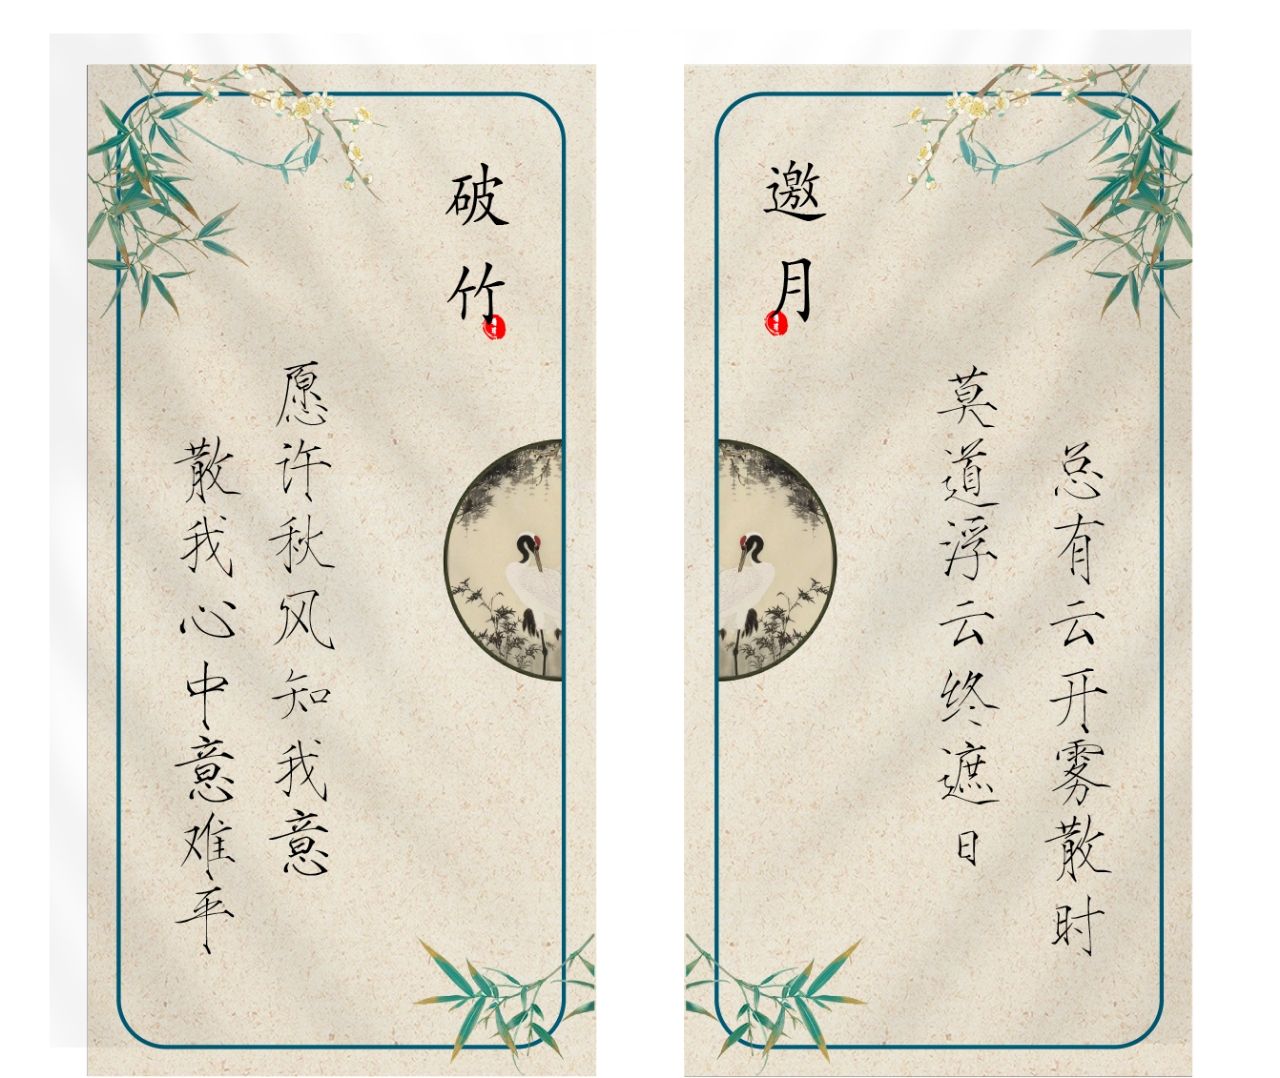 破竹
愿许秋风知我意
散我心中意难平
邀月
莫道浮云终遮日
总有云开雾散时